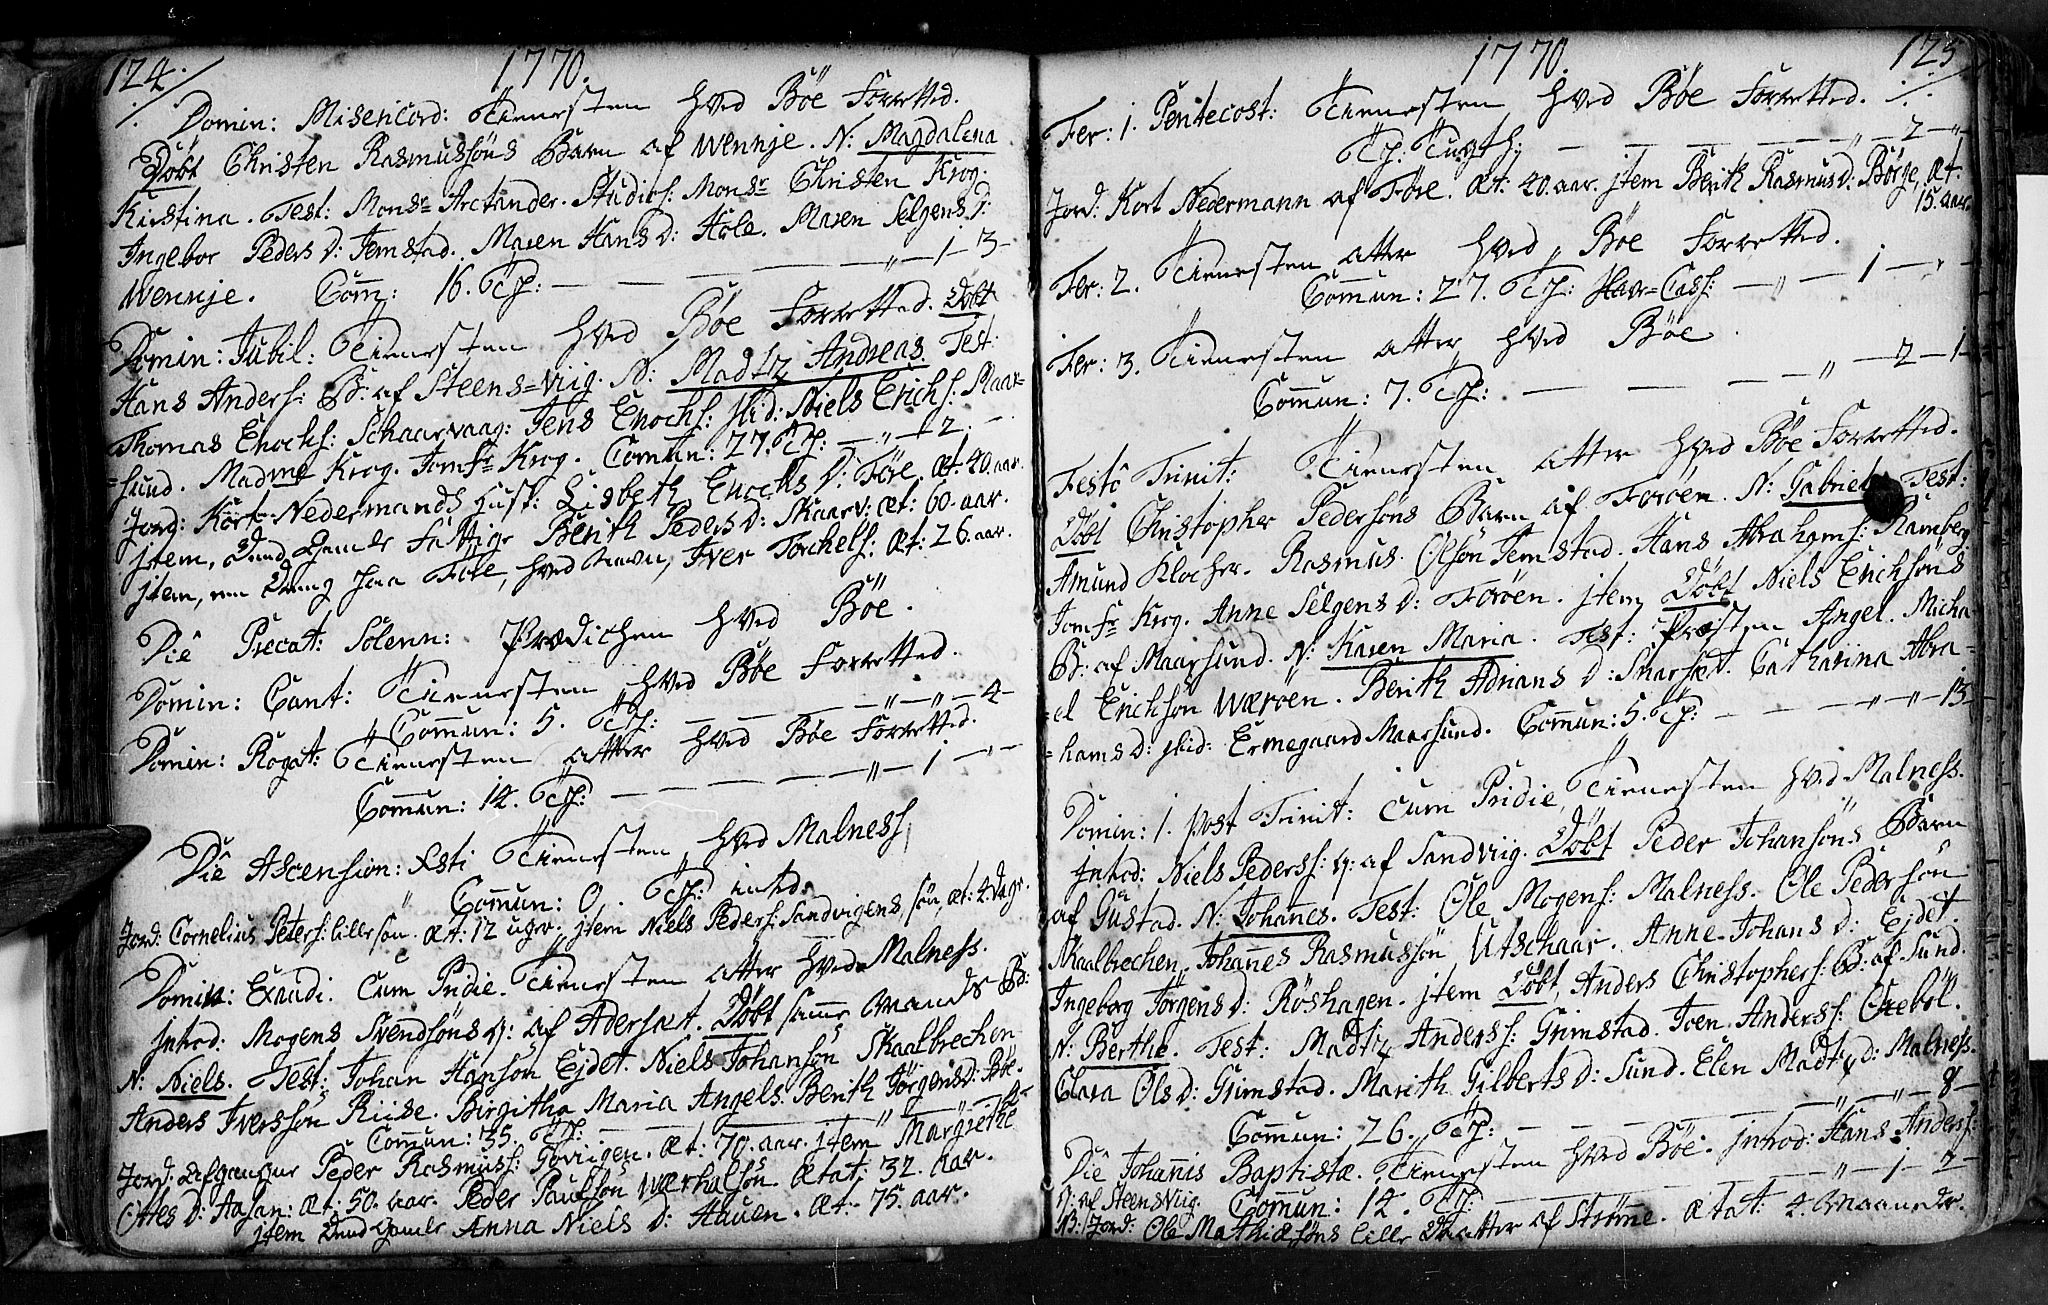 124. 1770.
Domin: Misericord: Tienesten hved Böe Forretted.
Döbt Christen Rasmussöns Barn af Wennje. N: Magdalena
Kristina. Test: Monsr Arctander. Studios: Monsr Christen Krog.
Ingebor Peders D: Jemstad. Maren Hans D: Hole. Maren Selgens D:
Wennje. Com̄: 16. Tf: — — — — „ — 1 — 3 —
Domin: Jubil: Tienesten hved Böe Forretted. Döbt
Hans Anders: B: af Steens=Viig. N: Madtz Andreas. Test:
Thomas Enochs: Schaarvaag: Jens Enochs: ibid: Niels Erichs: Maar=
=sund. Madme Krog. Jomfr Krog. Com̄un: 27. Tf: — „ — 1 2. —
Jord: Kort Nedermands Hust: Lisbeth Enochs D: Före, Æt: 40. aar.
jtem, Dend Gamle Fattige Berith Peders D: Skaarv: æt: 60. aar.
jtem, en Dreng paa Före, hved Navn, Iver Torchels: Æt: 26. aar.
Die Precat: Solenn: Prædichen hved Böe.
Domin: Cant: Tienesten hved Böe Forretted.
Com̄un: 5. Tf: — — — „ — „ — 4 —
Domin: Rogat: Tienesten atter hved Böe Forretted.
Com̄un: 14. Tf: — — — — „ — 1 — „ —
Die Ascension: Xsti Tienesten hved Malness
Com̄un: 0. Tf: inted.
Jord: Cornelius Peters: lille sön. Æt: 12 uger. jtem Niels Peders: Sandvigens, sön, æt: 4. Dage.
Domin: Exaudi. Cum Pridie. Tienesten atter hved Malness.
jntrod: Mogens Svendsöns q: af Adersæt. Döbt samme Mands B:
N: Niels. Test: Johan Hansön Ejdet. Niels Johansön Skaalbrechen
Anders Iverssön Riise. Birgitha Maria Angels. Berith Jörgens D: Böe.
Com̄un: 35. Tf: — — — — „ — „ — 4 —
Jord: Afgangne Peder Rasmuss: Govigen. Æt: 70. aar. jtem Margrethe
Ottes D: Aasan: Æt: 50. aar. Peder Paulsön Wærhalsön Ætat: 32. aar.
jtem Dend Gamle Anna Niels D: Hauen. Æt: 75. aar.
1770. 125
Fer: 1. Pentecost: Tienesten hved Böe Forretted.
Tf: Tugth: — — — — „ — 2 — „ —
Jord: Kort Nedermann af Före. Æt: 40. aar. jtem Berith Rasmus D: Börge, Æt:
15. aar.
Fer: 2. Tienesten atter hved Böe Forretted.
Com̄un: 27. Tf: Hav=Cass: — „ — 1 — „ —
Fer: 3. Tienesten atter hved Böe
Com̄un: 7. Tf: — — — — „ — 2 — 1 —
Festô Trinit: Tienesten atter hved Böe Forretted.
Döbt Christopher Pedersöns Barn af Foröen. N: Gabriel Test:
Amund Klocher. Rasmus Olsön Jemstad. Hans Abrahams: Ramberg
Jomfr Krog. Anne Selgens D: Foröen. jtem Döbt Niels Erichsöns
B: af Maarsund. N: Karen Maria. Test: Præsten Angel. Micha=
=el Erichsön Wæröen. Berith Adrians D: Snarsæt. Catharina Abra=
=hams D: ibid: Ermegaard Maarsund. Com̄un: 5. Tf: — — — „ — „ — 13 —
Domin: 1. post Trinit: Cum Pridie, Tienesten hved Malness.
Introd: Niels Peders: q: af Sandviig. Döbt Peder Johansöns Barn
af Gustad. N: Johan̄es. Test: Ole Mogens: Malness. Ole Pedersön
Skaalbrechen. Johan̄es Rasmussön Utschaar. Anne Johans D: Ejdet.
Ingeborg Jörgens D: Röshagen. jtem Döbt Anders Christophers: B: af Sund.
N: Berthe. Test: Madtz Anderss: Grimstad. Joen Anderss:
Clara Ols D: Grimstad. Marith Gilberts D: Sund. Elen Madtz D: Malness.
Com̄un: 26. Tf: — — — — „ — „ — 8 —
Die Johan̄is Baptistæ. Tienesten hved Böe. jntrod: Hans Anders:
q: af Steensviig. Com̄un: 14. Tf: — — — „ — 1 — 2 —
Jord: Ole Mathiæsöns lille Datter af Strömme. Ætat: 4. Maaneder.